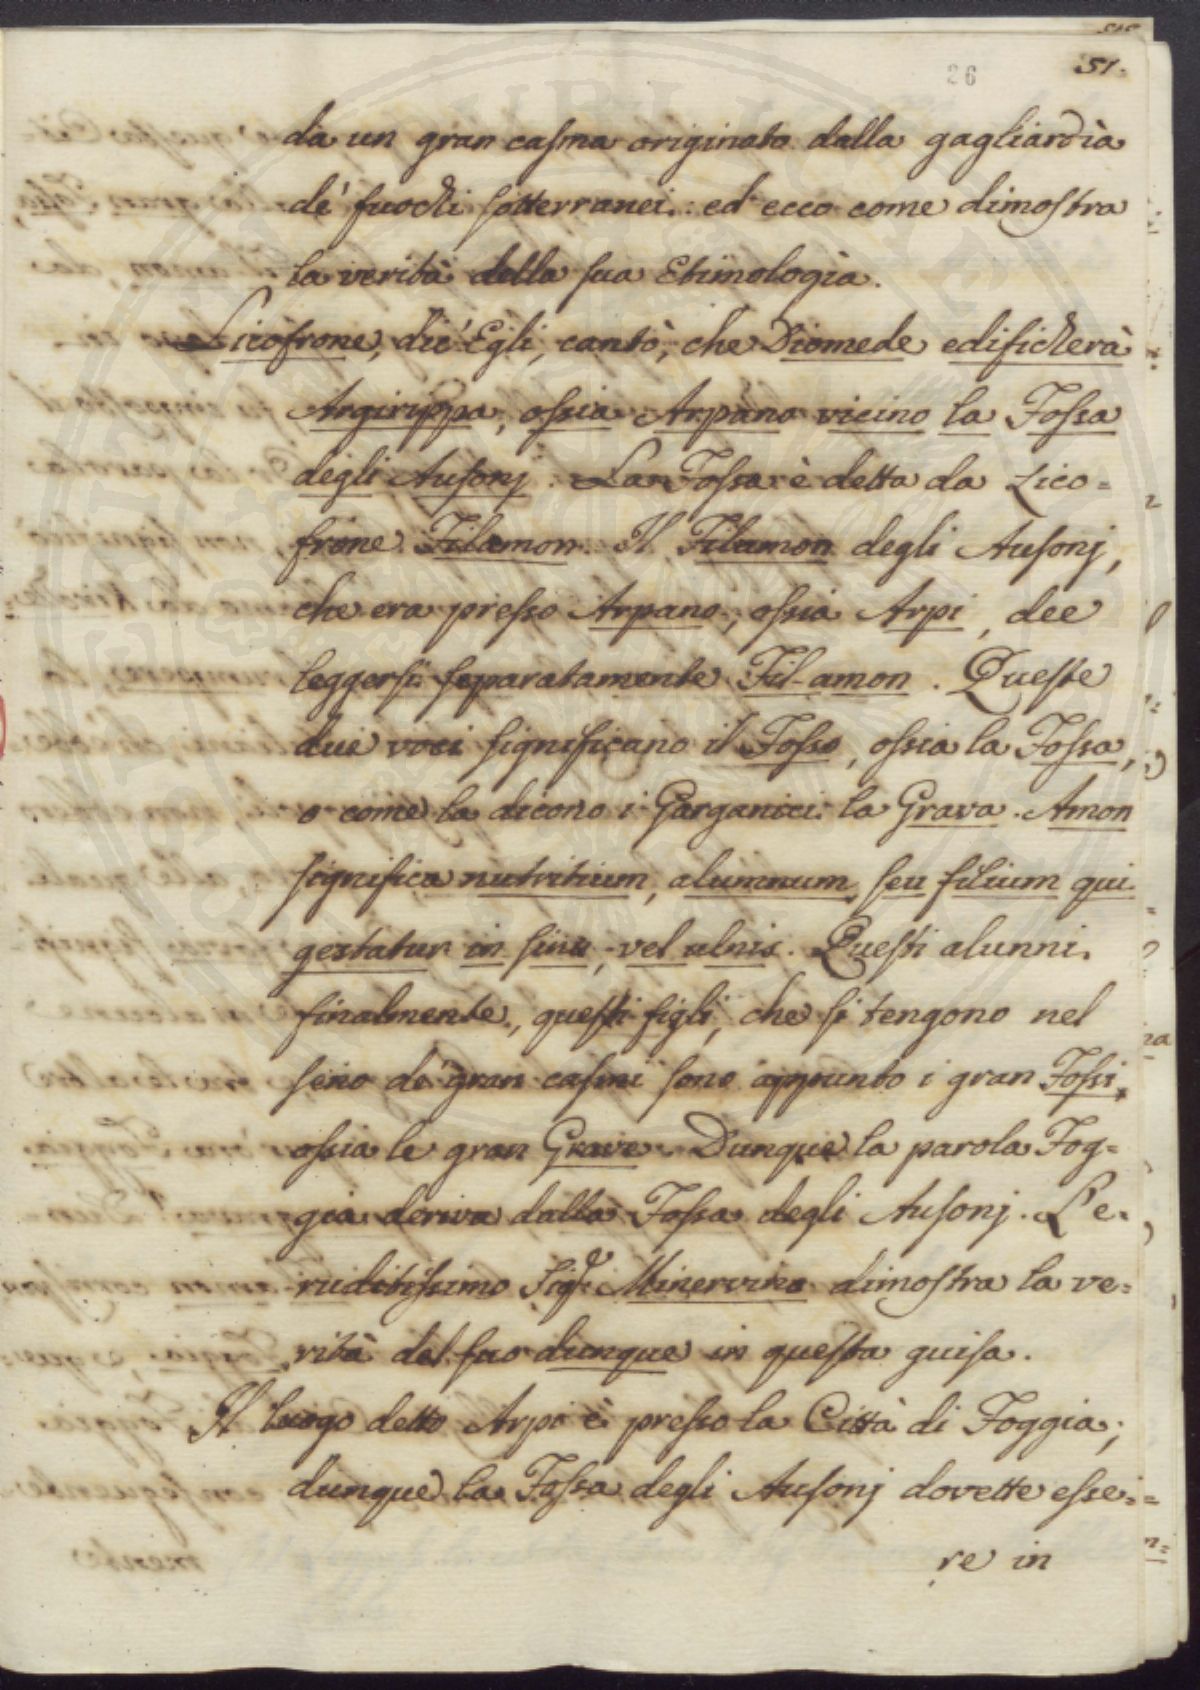 26
51.
da un gran casma originato dalla gagliardìa
de' fuochi sotterranei: ed ecco come dimostra
la verità della sua Etimologìa.
Licofrone, dic'Egli, cantò, che Diomede edificherà
Argirippa, ossia Arpano vicino la Fossa
degli Ausonj. La Fossa è detta da Lico=
frone Filamon. Il Filamon degli Ausonj,
che era presso Arpano, ossia Arpi, dee
leggersi separatamente Fil-amon. Queste
due voci significano il Fosso, ossia la Fossa,
o come la dicono i Garganici la Grava. Amon
significa nutritium, alumnum, seu filium qui
gestatur in sinu, vel ulnis. Questi alunni
finalmente, questi figli, che si tengono nel
seno de' gran casmi sono appunto i gran Fossi,
ossia le gran Grave. Dunque la parola Fog=
gia deriva dalla Fossa degli Ausonj. L'e=
ruditissimo Sigr. Minervino dimostra la ve=
rità del suo dunque in questa guisa.
Il luogo detto Arpi è presso la Città di Foggia;
dunque la Fossa degli Ausonj dovette esse=
re in